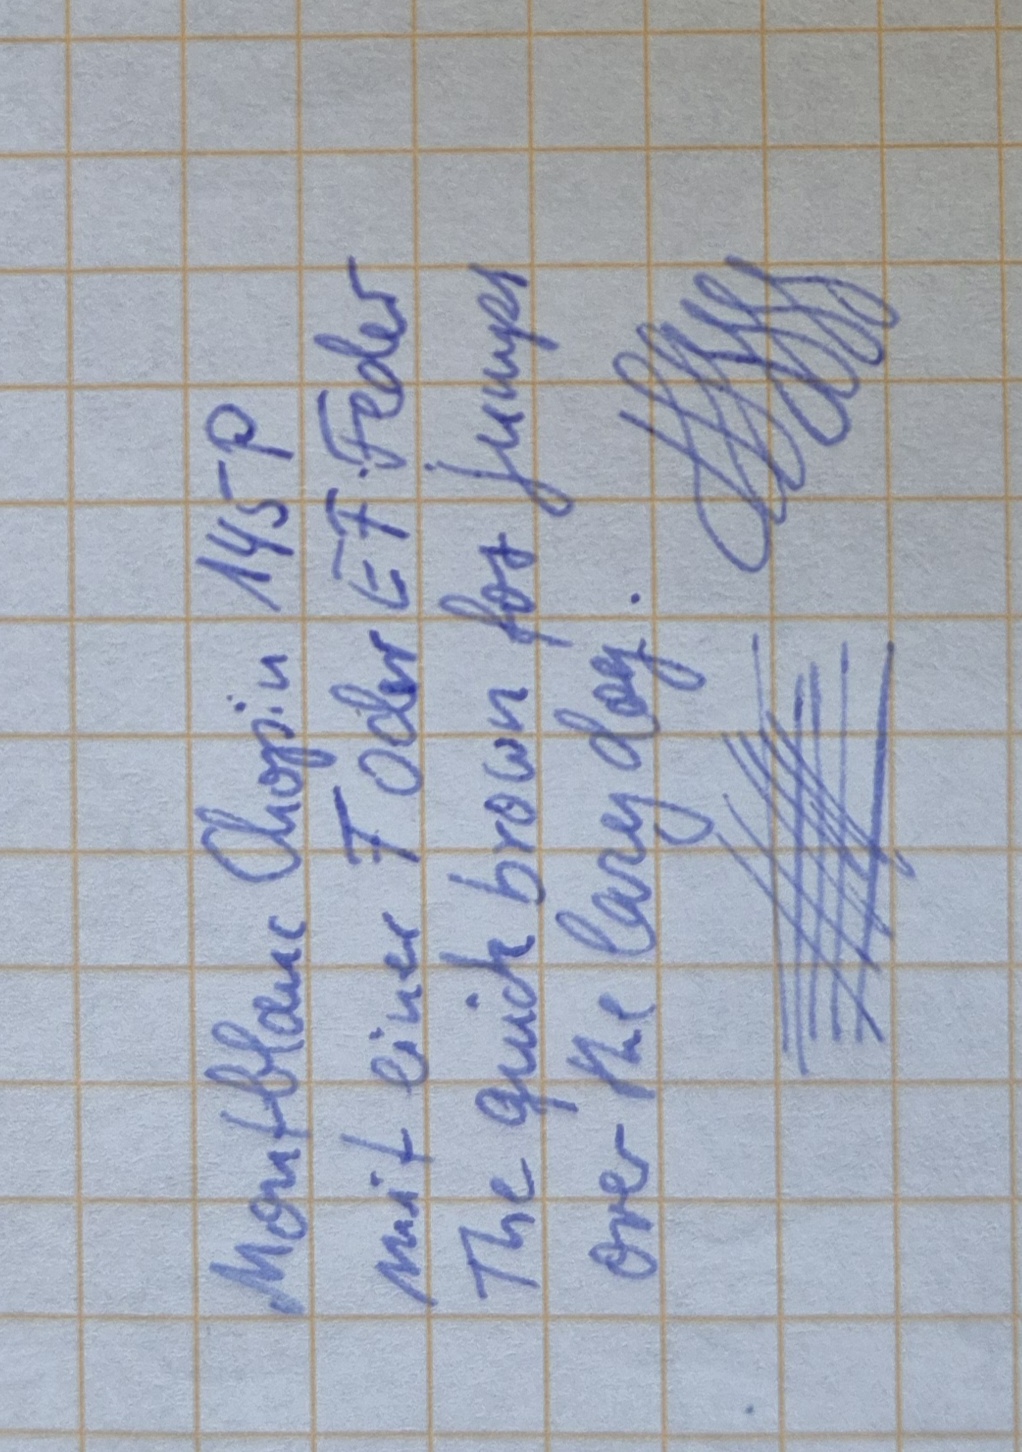 Montblanc Chopin 145 P
mit einer F oder EF-Feder
The quick brown fox jumps
over the lazy dog.